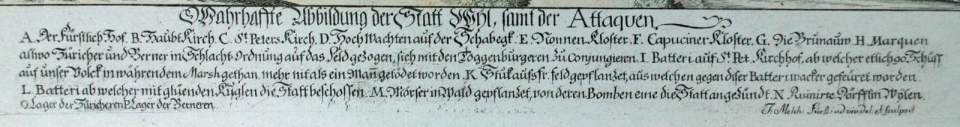 Wahrhaffte Abbildung der Statt Wyl, samt der Attaquen
A. Der Fürstlich Hof. B. Haubt Kirch. C. St. Peters Kirch. D. Hoch Wachten auf der Schabegk. E. Nonnen Kloster. F. Capuciner Kloster. G. Die Brünauw. H. Marquen
alhwo Züricher und Berner in Schlacht Ordnung auf das Feld gezogen, sich mit den Toggenbürgeren zu Conjungieren. I. Batteri auf St. Pet. Kirchhof, ab welcher etlich 90 Schüss
auf unser Volck in währendem Marsh gethan, mehr nit als ein Mañ getödet worden. K. Stuk aufs fr. feld gepflantzet, aus welchen gegen diser Batteri wacker gefeuret worden.
L. Batteri ab welcher mit glüenden Kuglen die Statt beschossen. M. Mörser in Wald gepflantzet, von deren Bomben eine die Statt angezündt. N. Ruinirte Dörfflin Wölen.
O. Lager der Züricheren P. Lager der Berneren.
J. Melch. Füeßli ad viv. del. et sculpsit